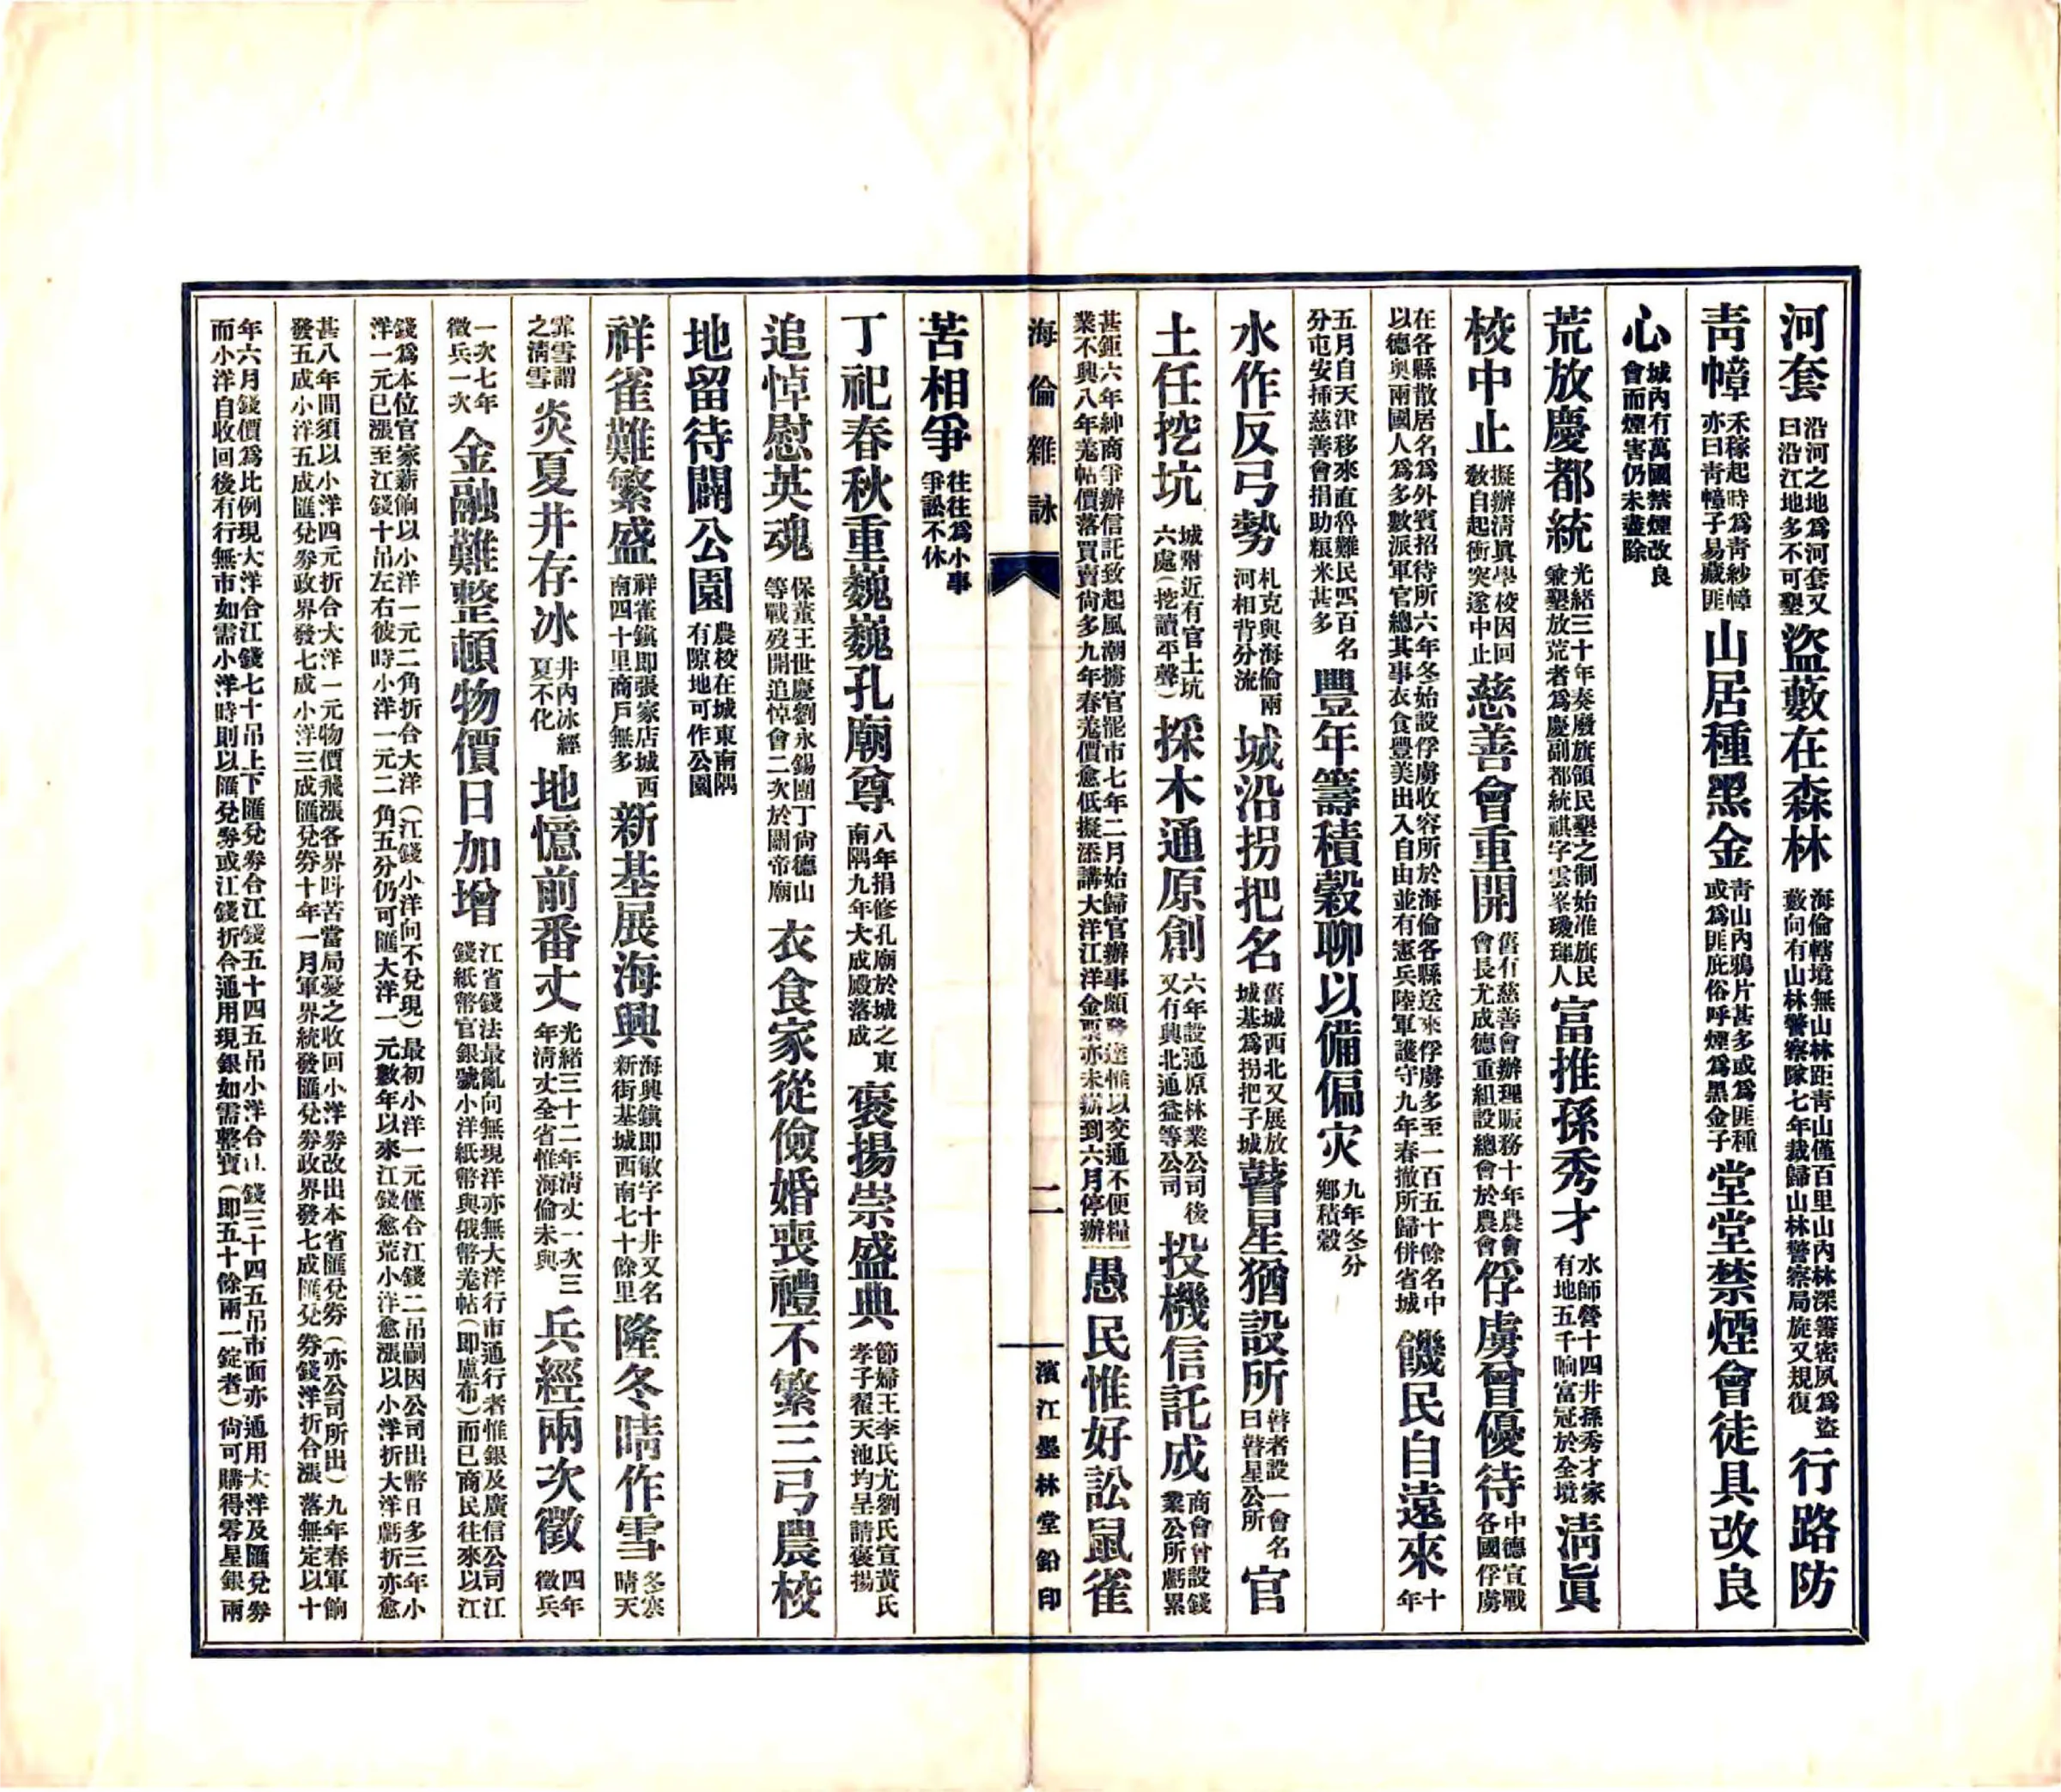 河套沿河之地爲河套又曰沿江地多不可墾盜藪在森林海倫轄境無山林距靑山僅百里山內林深箐密夙爲盜藪向有山林警察隊七年裁歸山林警察局旋又規復行路防
靑幛禾稼起時爲靑紗幛亦曰靑幛子易藏匪山居種黑金靑山內鴉片甚多或爲匪種或爲匪庇俗呼煙爲黑金子堂堂禁煙會徒具改良
心城內有萬國禁煙改良會而煙害仍未盡除
荒放慶都統光緒三十年奏廢旗領民墾之制始准旗民兼墾放荒者爲慶副都統祺字雲峯璦琿人富推孫秀才水師營十四井孫秀才家有地五千晌富冠於全境淸眞
校中止擬辦淸眞學校因回敎自起衝突遂中止慈善會重開舊有慈善會辦理賑務十年農會會長尤成德重組設總會於農會俘虜曾優待中德宣戰各國俘虜
在各縣散居名爲外賓招待所六年冬始設俘虜收容所於海倫各縣送來俘虜多至一百五十餘名中以德奧兩國人爲多數派軍官總其事衣食豐美出入自由並有憲兵陸軍護守九年春撤所歸併省城饑民自遠來十年
五月自天津移來直魯難民四百名分屯安揷慈善會捐助粮米甚多豐年籌積穀聊以備偏灾九年冬分鄉積穀
水作反弓勢札克與海倫兩河相背分流城沿拐把名舊城西北又展放城基爲拐把子城瞽星猶設所瞽者設一會名曰瞽星公所官
土任挖坑城附近有官土坑六處（挖讀平聲）採木通原創六年設通原林業公司後又有興北通益等公司投機信託成商會曾設錢業公所虧累
甚鉅六年紳商爭辦信託致起風潮擲官罷市七年二月始歸官辦事頗發達惟以交通不便糧業不興八年羌帖價落買賣尙多九年春羌價愈低擬添講大洋江洋金票亦未辦到六月停辦愚民惟好訟鼠雀
海倫雜詠　二　濱江墨林堂鉛印
苦相爭往往爲小事爭訟不休
丁祀春秋重巍巍孔廟尊八年捐修孔廟於城之東南隅九年大成殿落成褒揚崇盛典節婦王李氏尤劉氏宣黃氏孝子翟天池均呈請褒揚
追悼慰英魂保董王世慶劉永錫團丁尙德山等戰歿開追悼會二次於關帝廟衣食家從儉婚喪禮不繁三弓農校
地留待闢公園農校在城東南隅有隙地可作公園
祥雀難繁盛祥雀鎭卽張家店城西南四十里商戶無多新基展海興海興鎭卽敏字十井又名新街基城西南七十餘里隆冬晴作雪冬寒晴天
霏雪謂之淸雪炎夏井存冰井內冰經夏不化地憶前番丈光緒三十二年淸丈一次三年淸丈全省惟海倫未與兵經兩次徵四年徵兵
一次七年徵兵一次金融難整頓物價日加增江省錢法最亂向無現洋亦無大洋行市通行者惟銀及廣信公司江錢紙幣官銀號小洋紙幣與俄幣羌帖（卽盧布）而已商民往來以江
錢爲本位官家薪餉以小洋一元二角折合大洋（江錢小洋向不兌現）最初小洋一元僅合江錢二吊嗣因公司出幣日多三年小洋一元已漲至江錢十吊左右彼時小洋一元二角五分仍可匯大洋一元數年以來江錢愈荒小洋愈漲以小洋折大洋虧折亦愈
甚八年間須以小洋四元折合大洋一元物價飛漲各界叫苦當局憂之收回小洋券改出本省匯兌券（亦公司所出）九年春軍餉發五成小洋五成匯兌券政界發七成小洋三成匯兌券十年一月軍界統發匯兌券政界發七成匯兌券錢洋折合漲落無定以十
年六月錢價爲比例現大洋合江錢七十吊上下匯兌券合江錢五十四五吊小洋合江錢三十四五吊市面亦通用大洋及匯兌券而小洋自收回後有行無市如需小洋時則以匯兌券或江錢折合通用現銀如需整寶（卽五十餘兩一錠者）尙可購得零星銀兩